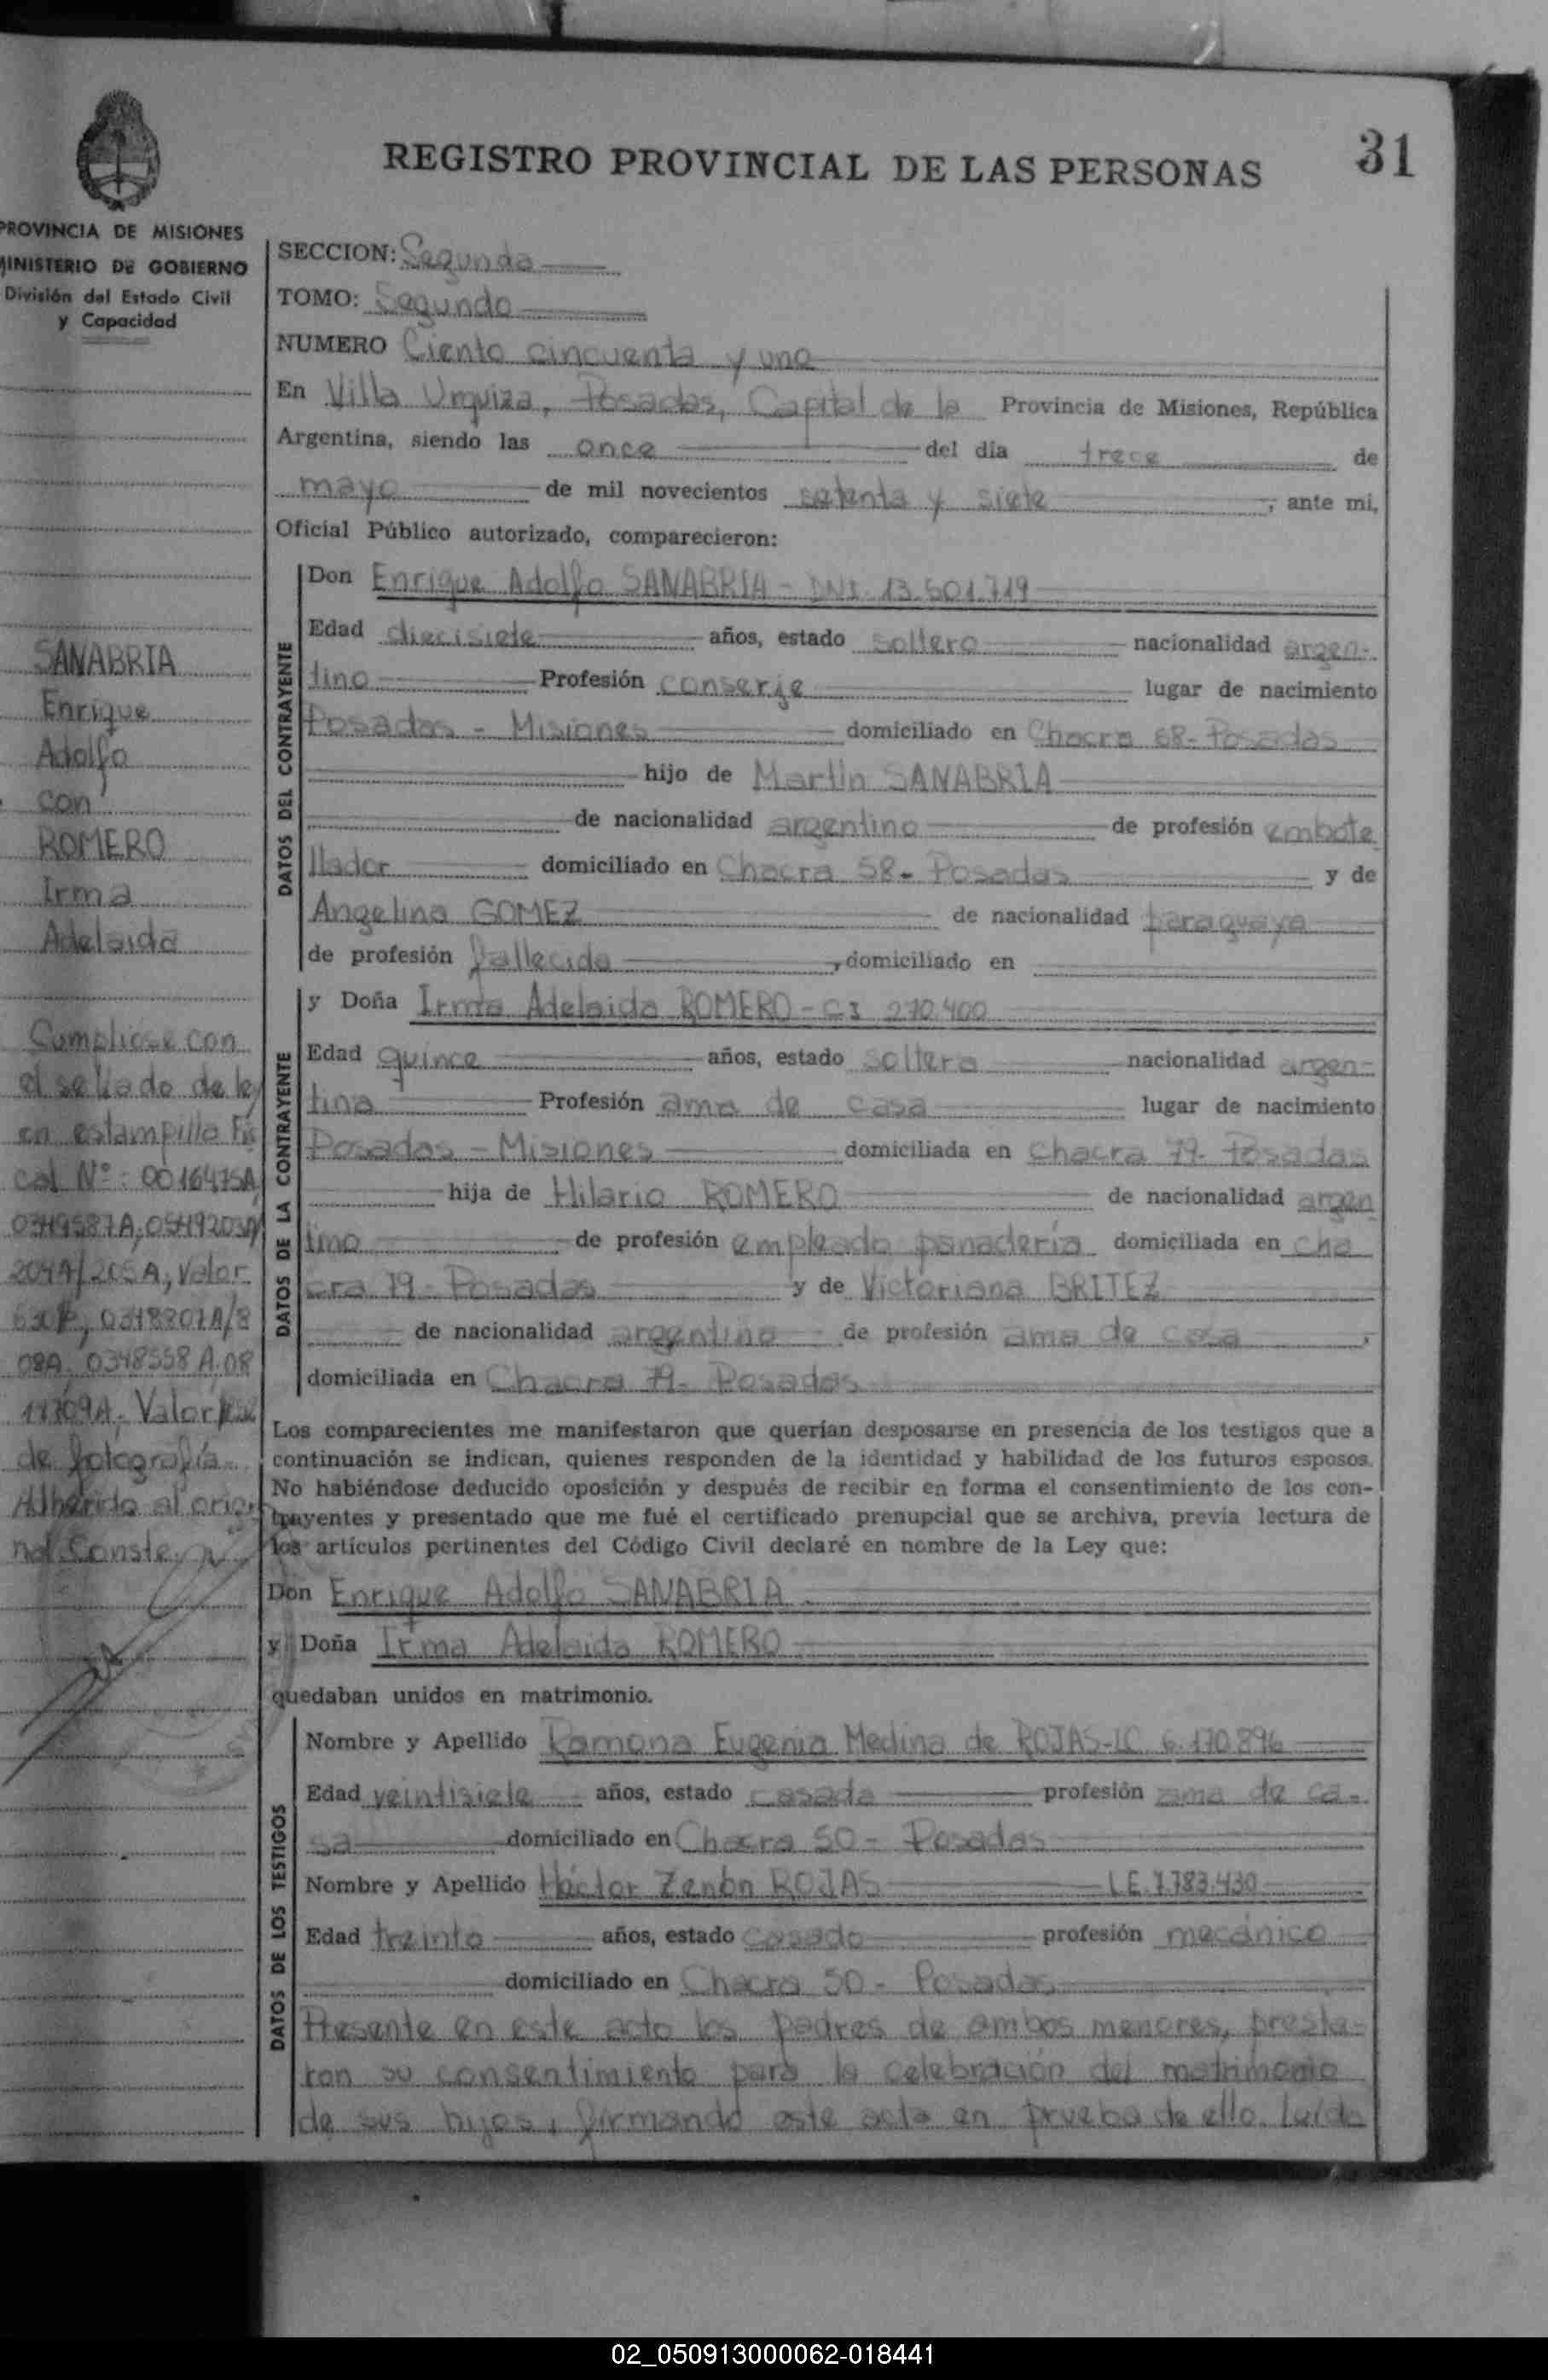 REGISTRO PROVINCIAL DE LAS PERSONAS
31
PROVINCIA DE MISIONES
MINISTERIO DE GOBIERNO
División del Estado Civil
y Capacidad
SANABRIA
Enrique
Adolfo
con
ROMERO
Irma
Adelaida
Cumpliose con
el sellado de ley
en estampilla Fis
cal Nº: 0016475A
204A/205A, Valor
08A, 0348558A.08
Valor
de fotografía
Adherida al origi
nal Conste.
SECCION: Segunda
TOMO: Segundo
NUMERO Ciento cincuenta y uno
En Villa Urquiza, Posadas, Capital de la Provincia de Misiones, República
Argentina, siendo las once del día trece de
mayo de mil novecientos setenta y siete, ante mi,
Oficial Público autorizado, comparecieron:
DATOS DEL CONTRAYENTE
Don Enrique Adolfo SANABRIA - DNI. 13.501.719
Edad diecisiete años, estado soltero nacionalidad argen-
tino Profesión conserje lugar de nacimiento
Posadas - Misiones domiciliado en Chacra 68- Posadas
hijo de Martín SANABRIA
de nacionalidad argentino de profesión embote
llador domiciliado en Chacra 58- Posadas y de
Angelina GOMEZ de nacionalidad paraguaya
de profesión fallecida, domiciliado en
DATOS DE LA CONTRAYENTE
y Doña Irma Adelaida ROMERO - CI 270.400
Edad quince años, estado soltera nacionalidad argen-
tina Profesión ama de casa lugar de nacimiento
Posadas - Misiones domiciliada en Chacra 79- Posadas
hija de Hilario ROMERO de nacionalidad argen
tino de profesión empleado panadería domiciliada en cha
cra 79- Posadas y de Victoriana BRITEZ
de nacionalidad argentina de profesión ama de casa,
domiciliada en Chacra 79- Posadas
Los comparecientes me manifestaron que querían desposarse en presencia de los testigos que a
continuación se indican, quienes responden de la identidad y habilidad de los futuros esposos.
No habiéndose deducido oposición y después de recibir en forma el consentimiento de los con-
trayentes y presentado que me fué el certificado prenupcial que se archiva, previa lectura de
los artículos pertinentes del Código Civil declaré en nombre de la Ley que:
Don Enrique Adolfo SANABRIA
y Doña Irma Adelaida ROMERO
quedaban unidos en matrimonio.
DATOS DE LOS TESTIGOS
Nombre y Apellido Ramona Eugenia Medina de ROJAS-LC 6.170.896
Edad veintisiete años, estado casada profesión ama de ca-
sa domiciliado en Chacra 50- Posadas
Nombre y Apellido Héctor Zenón ROJAS L.E. 7.783.430
Edad treinta años, estado casado profesión mecánico
domiciliado en Chacra 50- Posadas
Presente en este acto los padres de ambos menores, presta-
ron su consentimiento para la celebración del matrimonio
de sus hijos, firmando este acta en prueba de ello. Leída
02_050913000062-018441